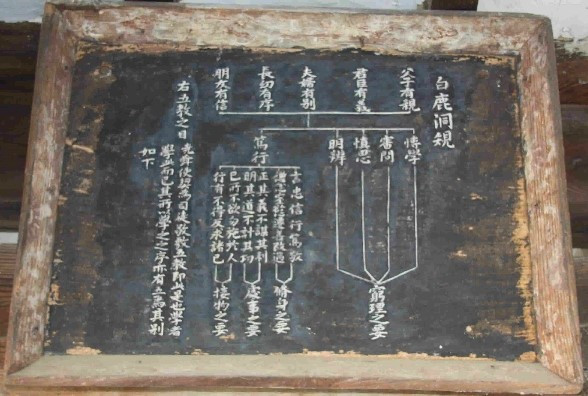 白鹿洞規
父子有親
君臣有義
夫婦有別
長幼有序
朋友有信
博學
審問
慎思
明辨
篤行
窮理之要
言忠信行篤敬
懲忿窒慾遷善改過
正其義不謀其利
明其道不計其功
己所不欲勿施於人
行有不得反求諸己
修身之要
處事之要
接物之要
右五敎之目 堯舜使契爲司徒敬敷五敎即此是也學者
學此而已其所以學之之序亦有五焉其別
如下